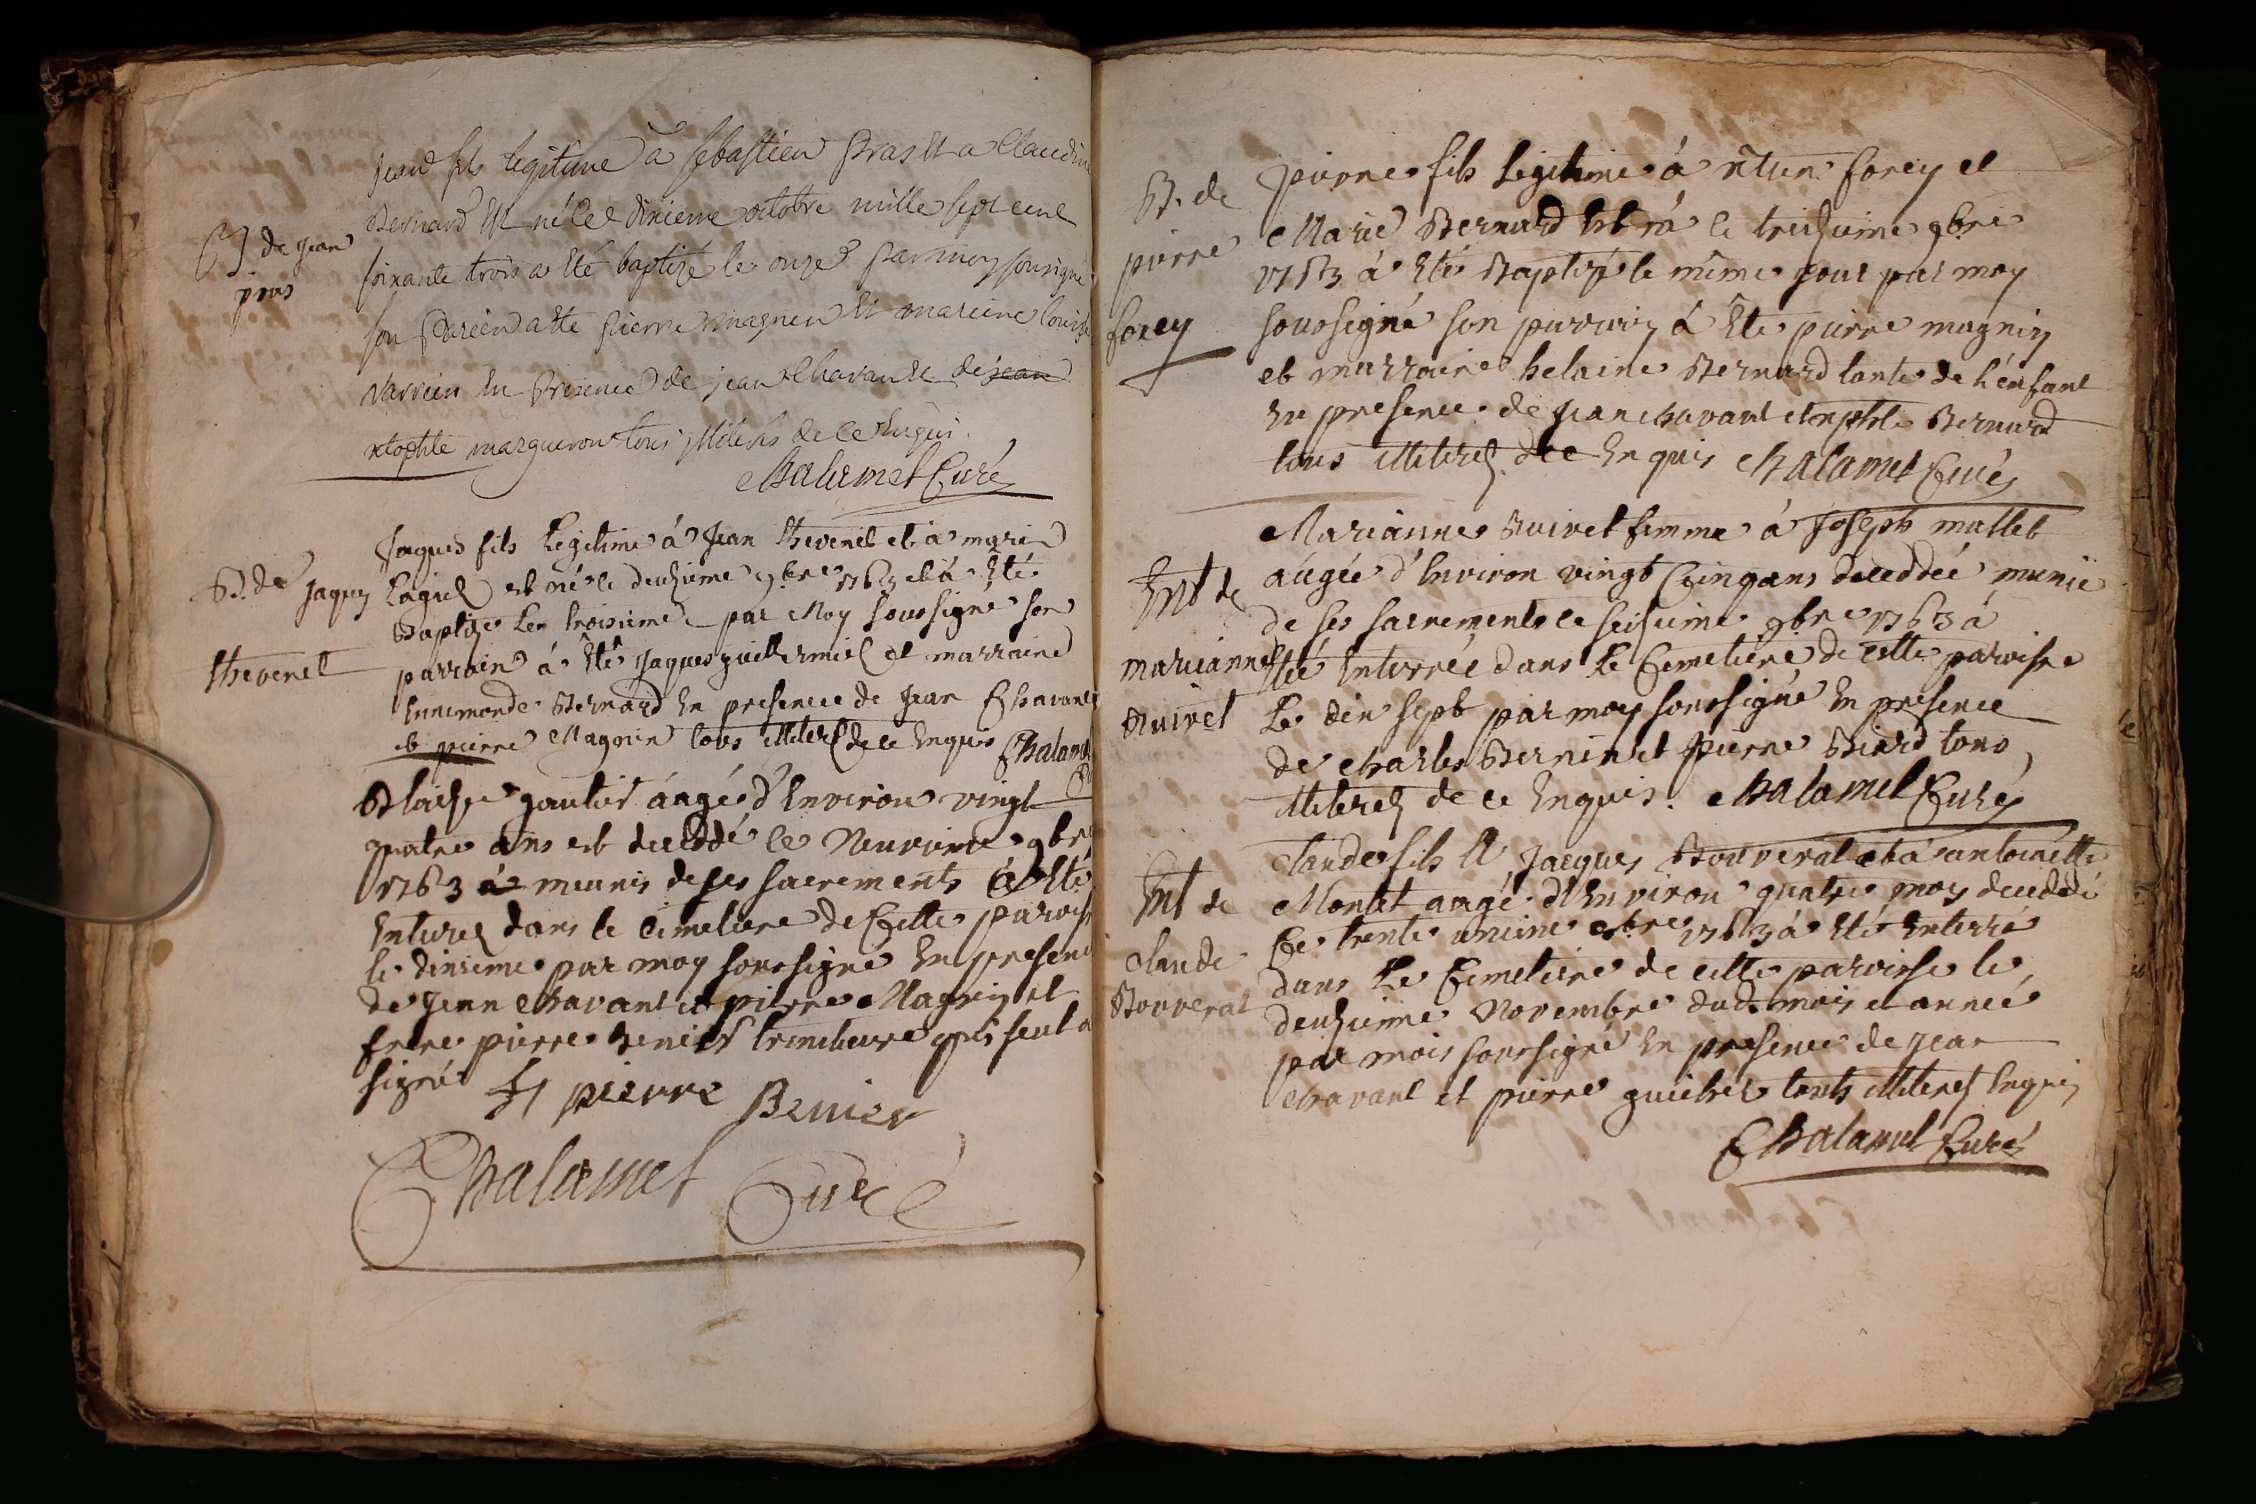 Jean fils legitime a Sebastien Pras et a Claudine
Bernard est né le dixieme octobre mille sept cent
B de Jean
soixante trois a eté baptizé le onze par moy sousigné
pras
son parein a ete pierre magnin et mareine louise
varvier en presence de jean Chavant et de jean
xtophle margueron tous illiterés de ce enquis.
Chalamel Curé
Jaques fils Legitime á Jean thevenet et á marie
B. de Jaques
Lagiel est né le deuxieme 9bre 1763 et á Eté
Baptize Le troisieme par Moy soussigné son
thevenet
parrain á Eté Jaques guillermiel et marraine
Ennemonde Bernard En presence de Jean Chavant
et pierre Magnin tous illiterés de ce Enquis Chalamel
Blaise gautier áagé d'Environ vingt
quatre ans est deceddé le Neuvieme 9bre
1763 a meunis de ses sacrements á Eté
Enterré dans le Cimetiere de Cette paroisse
le dixieme par moy soussigné En presence
de Jean Chavant et pierre Magnin et
frere pierre Benier qui seul a
signé f pierre Benier
Chalamel Curé
pierre fils Legitime á forey et
B. de
Marie Bernard Est né le treizieme 9bre
pierre
1763 á Eté Baptizé le même jour par moy
forey
soussigné son parrain á Eté pierre magnin
et marraine helaine Bernard tante de L'enfant
En presence de Jean chavant et xtophle Bernard
tous illiterés de ce Enquis Chalamel Curé
Marianne Ruivet femme á Joseph mallet
Ent de
áagée d'Environ vingt Cinq ans deceddée munie
de ses sacrements le seizieme 9bre 1763 á
marianne
Eté Enterrée dans Le Cemetiere de cette paroisse
Ruivet
Le dix sept par moy soussigné En presence
de Charles Bernin et pierre Biard tous
illiterés de ce Enquis. Chalamel Curé
Claude fils á Jacques Bouverat et á antoinette
Ent de
Monet aagé d'Environ quatre moy deceddé
Ce trente unieme 8bre 1763 á Eté Enterré
Claude
dans Le Cemetiere de cette paroisse le
Bouverat
deuxieme Novembre dud. mois et année
par mois soussigné En presence de Jean
chavant et pierre guichet touts illiterés Enquis
Chalamel Curé